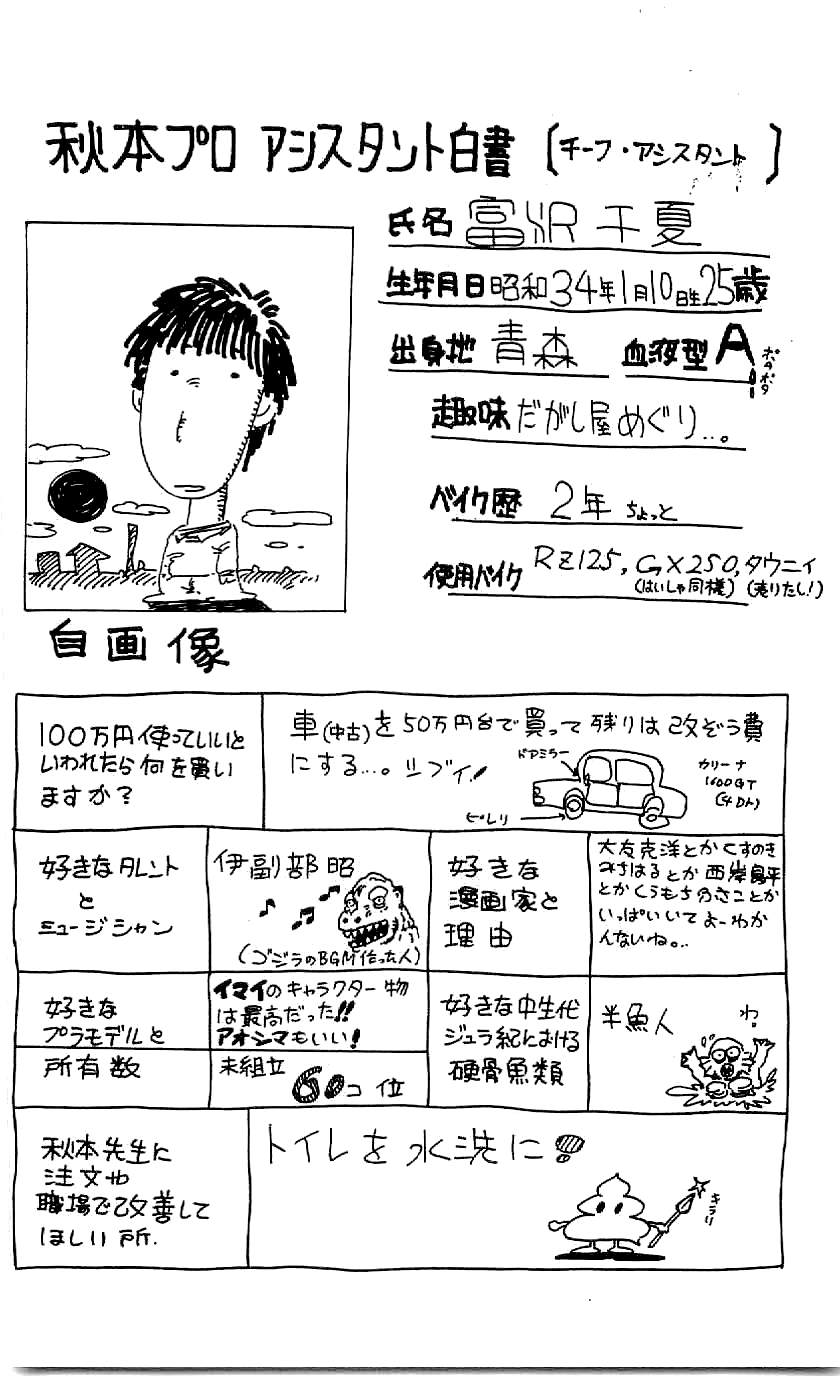 秋本プロ アシスタント白書 [チーフ・アシスタント]
氏名 富沢千夏
生年月日 昭和34年1月10日生 25歳
出身地 青森 血液型 A
ポタポタ
趣味 だがし屋めぐり…。
バイク歴 2年 ちょっと
使用バイク RZ125, GX250, タウニィ
(はいしゃ同様) (売りたし!)
自画像
100万円使っていいと
いわれたら何を買い
ますか?
車(中古)を50万円台で買って残りは改ぞう費
にする…。シブイ!
ドアミラー
ピレリ
カリーナ
1600GT
(4Dr)
好きなタレント
と
ミュージシャン
伊副部昭
(ゴジラのBGM作った人)
好きな
漫画家と
理由
大友克洋とかくすのき
みちはるとか西岸良平
とかくらもちふさことか
いっぱいいてよーわか
んないね。..
好きな
プラモデルと
イマイのキャラクター物
は最高だった!!
アオシマもいい!
所有数
未組立
60コ位
好きな中生代
ジュラ紀における
硬骨魚類
半魚人
わ?
秋本先生に
注文や
職場で改善して
ほしい所.
トイレを水洗に!
キラリ